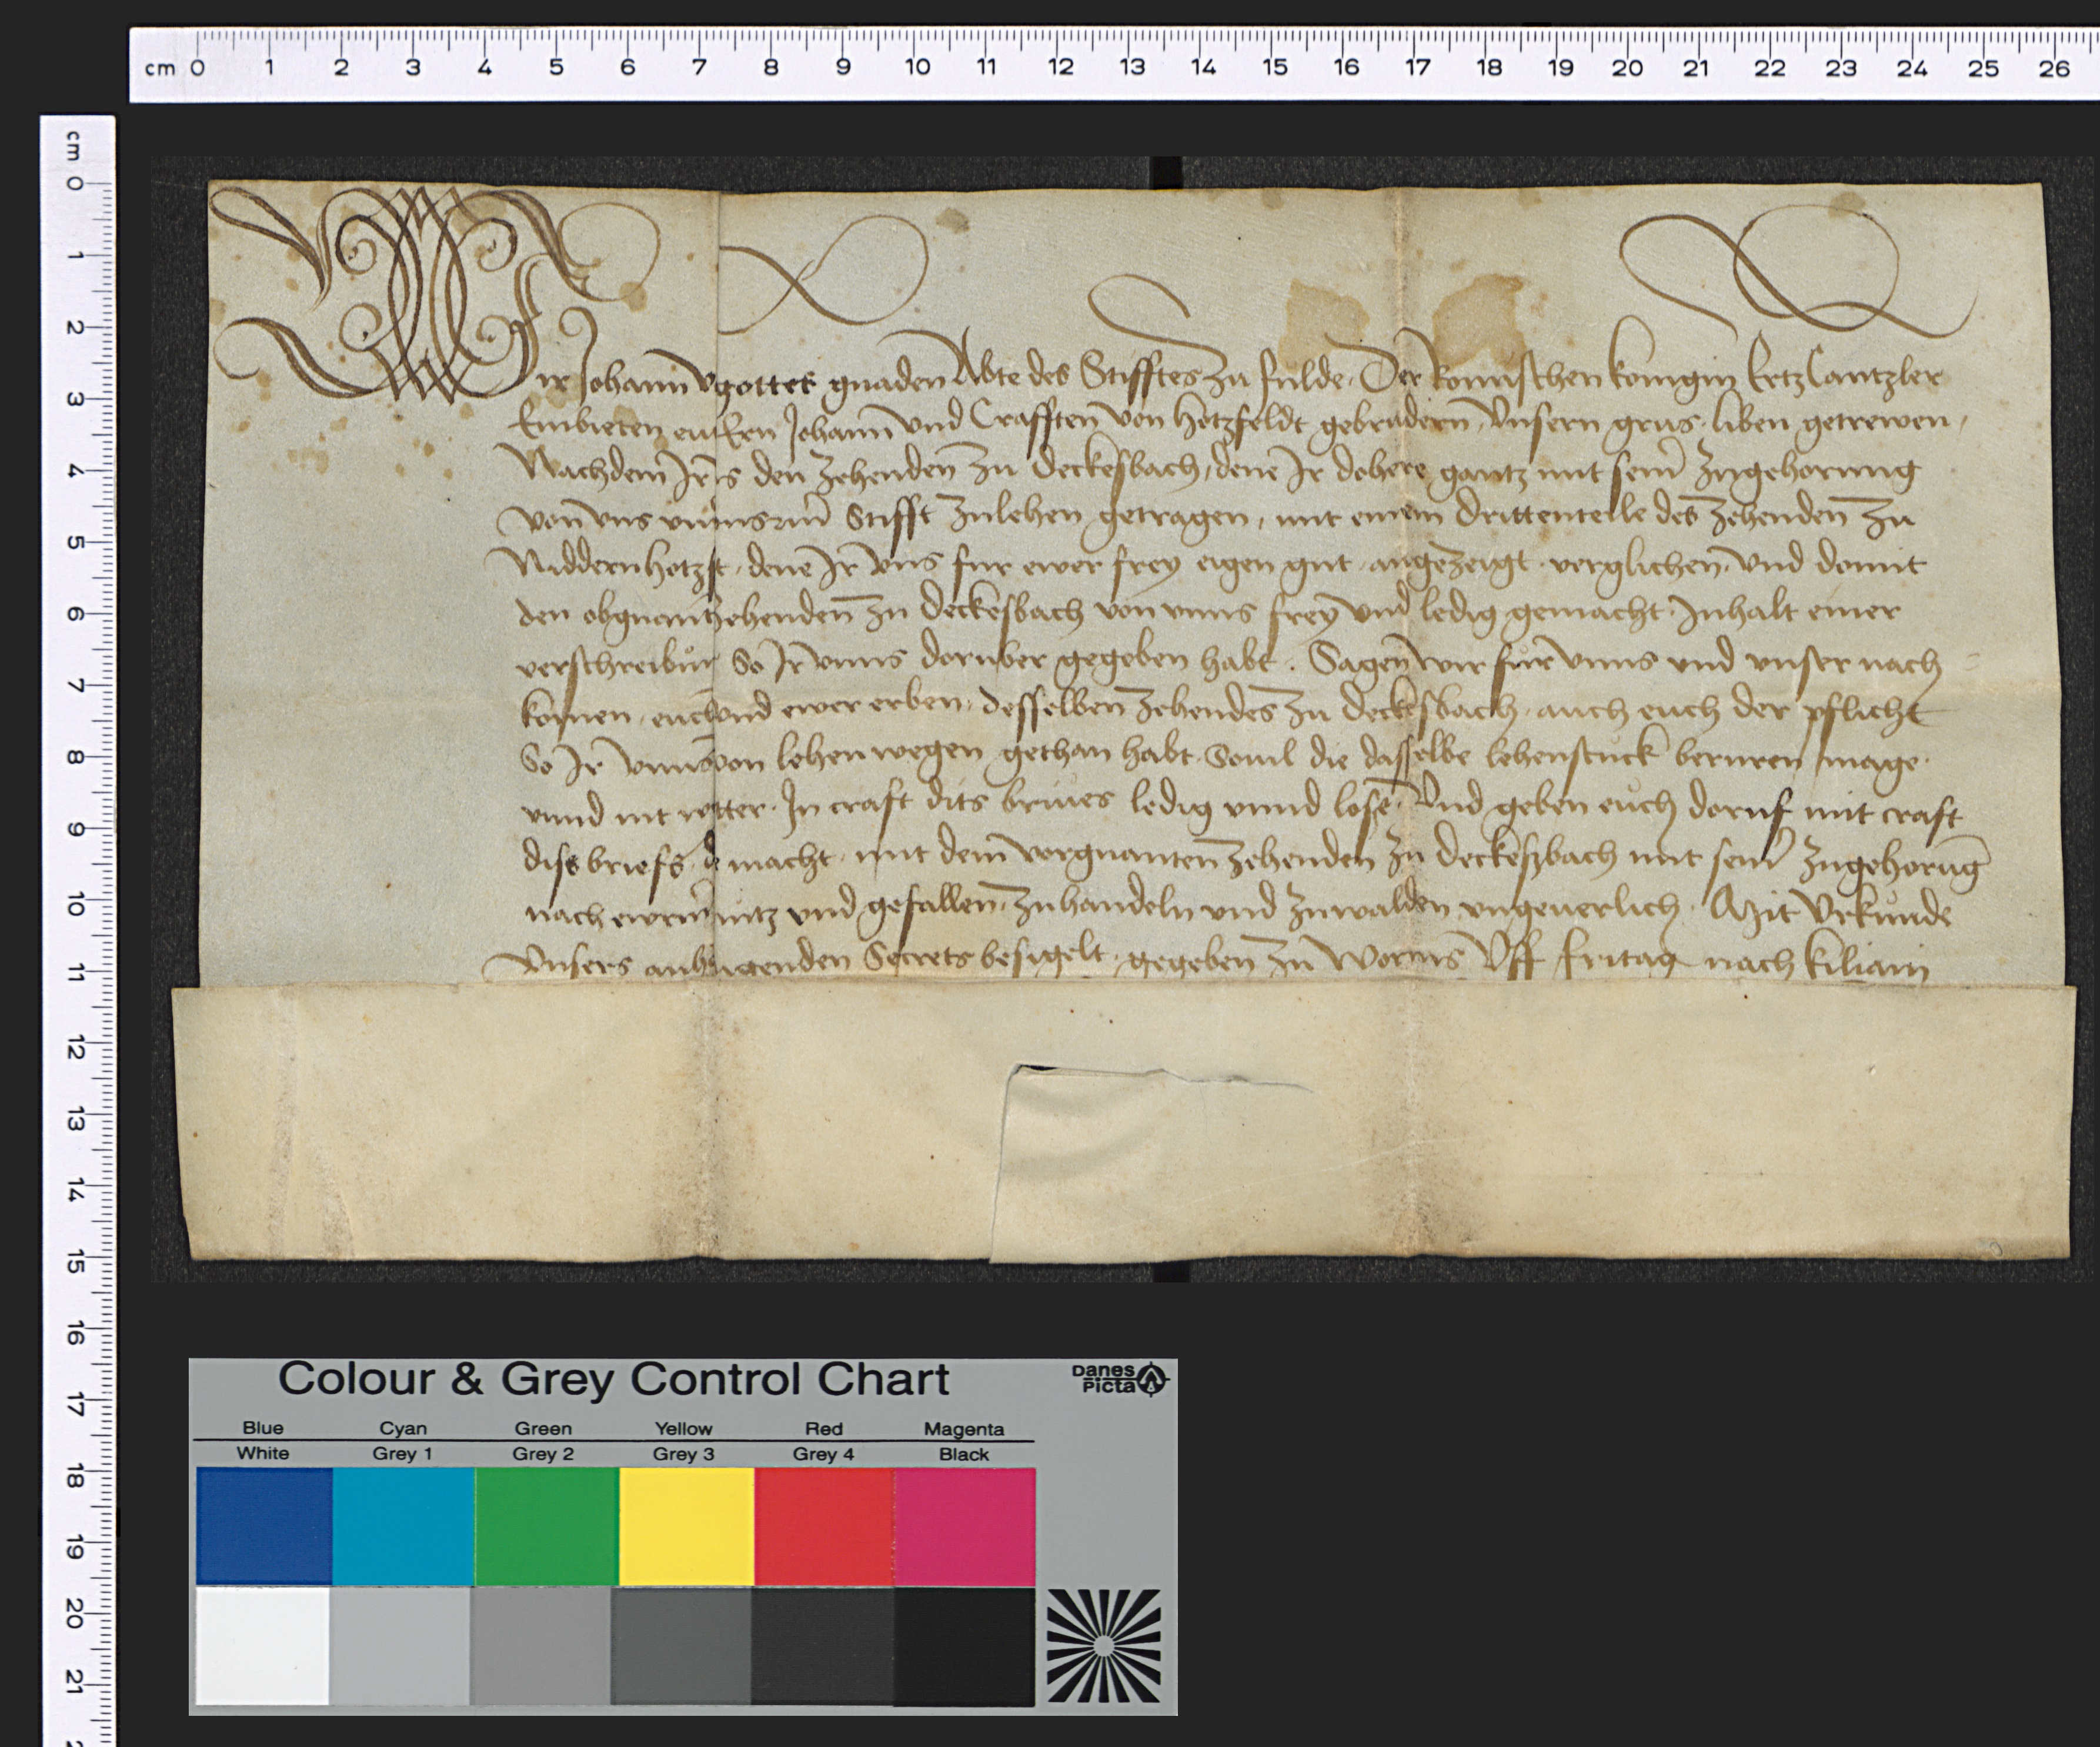 cm 0 1 2 3 4 5 6 7 8 9 10 11 12 13 14 15 16 17 18 19 20 21 22 23 24 25 26
cm 0 1 2 3 4 5 6 7 8 9 10 11 12 13 14 15 16 17 18 19 20 21
Wir Johann v gottes gnaden Abte des Stifftes zu fulde Der Romischen konigin Ertz Cantzler
Embieten euch Ern Johann und Crafften von hotzfeldt gebrudern Unsern grus liben getrewen
Nachdem Ir den zehenden zu deckesbach dene Ir dohere gantz mit seinr zugehorung
von uns unnserm Stifft zulehen getragen mit einem drittenteile des zehenden zu
Niddernhotzf dene Ir uns fur ewer frey eigen gut angezeugt verglichen und domit
den obgnantn zehenden zu deckesbach von unns frey und ledig gemacht Inhalt einer
verschreibung So Ir unns doruber gegeben habt Sagen wir fur unns und unser nach
komen euch und ewer erben desselben zehendes zu deckesbach auch euch der pflicht
So Ir unns von lehen wegen gethan habt Souil die dasselbe lehenstuck beruren mage
unnd nit witter In craft dits briues ledig unnd lose Und geben euch doruf mit craft
diss briefs macht mit dem vorgnanten zehenden zu deckeszbach mit seinr zugehorung
nach ewerm nutz und gefallen zuhandeln und zuwalden ungeuerlich Mit Urkunde
Unsers anhangenden Secrets besigelt gegeben zu Worms Uff fritag nach kiliani
Colour & Grey Control Chart
Danes
Picta
Blue Cyan Green Yellow Red Magenta
White Grey 1 Grey 2 Grey 3 Grey 4 Black